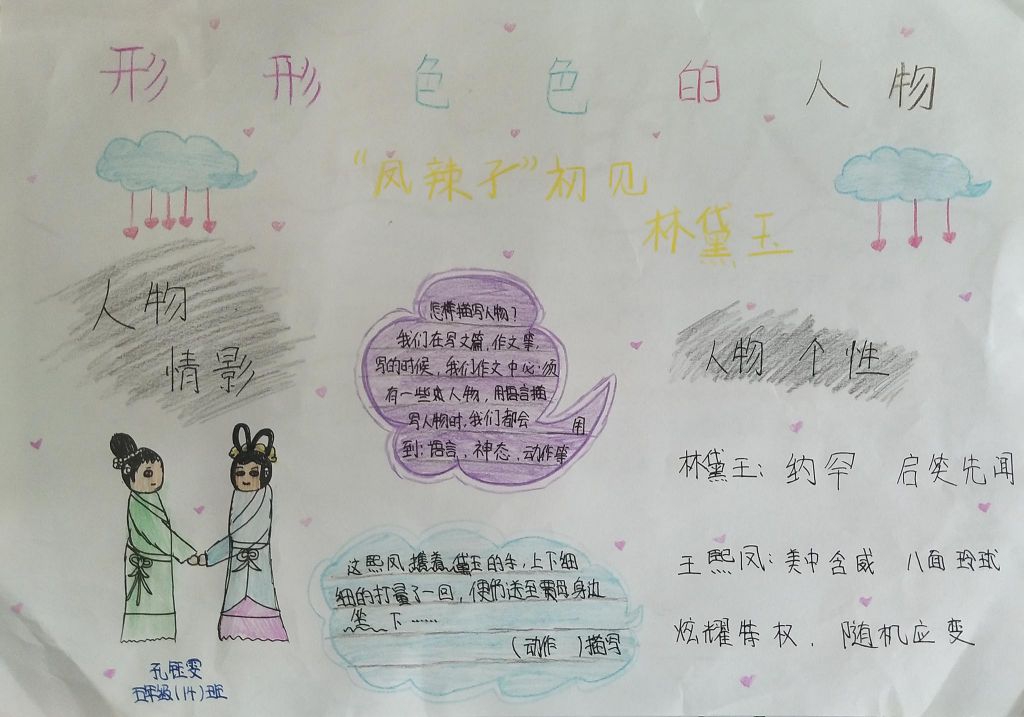 形形色色的人物
“凤辣子”初见
林黛玉
人物
情影
怎样描写人物?
我们在写文篇,作文等,
写的时候,我们作文中必须
有一些人物,用语言描
写人物时,我们都会用
到:语言,神态,动作等
这熙凤携着黛玉的手,上下细
细的打量了一回,便仍送至贾母身边
坐下……
(动作)描写
人物个性
林黛玉:纳罕 启笑先闻
王熙凤:美中含威 八面玲球
炫耀特权,随机应变
孔钰雯
五年级(14)班